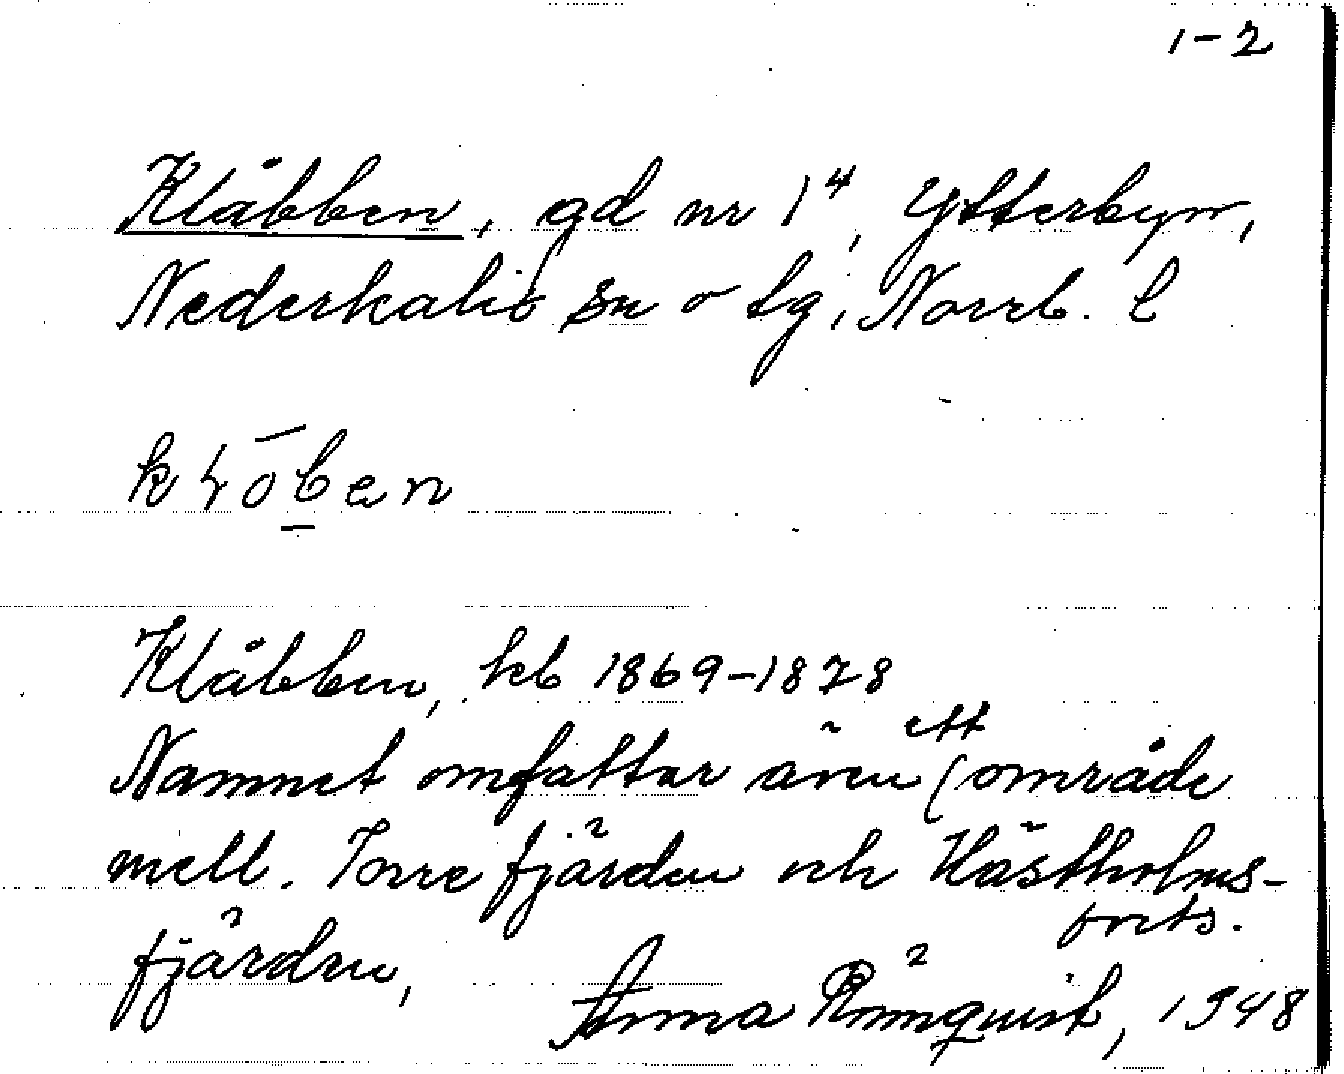 1-2
Klåbben, gd nr 1⁴, Ytterbyn,
Nederkalix sn o tg, Norrb. l
Klåbben, kb 1869-1878
Namnet omfattar även ett område
mell. Torre fjärden och Hästholms-
forts.
fjärden,
Anna Rönnquist, 1948